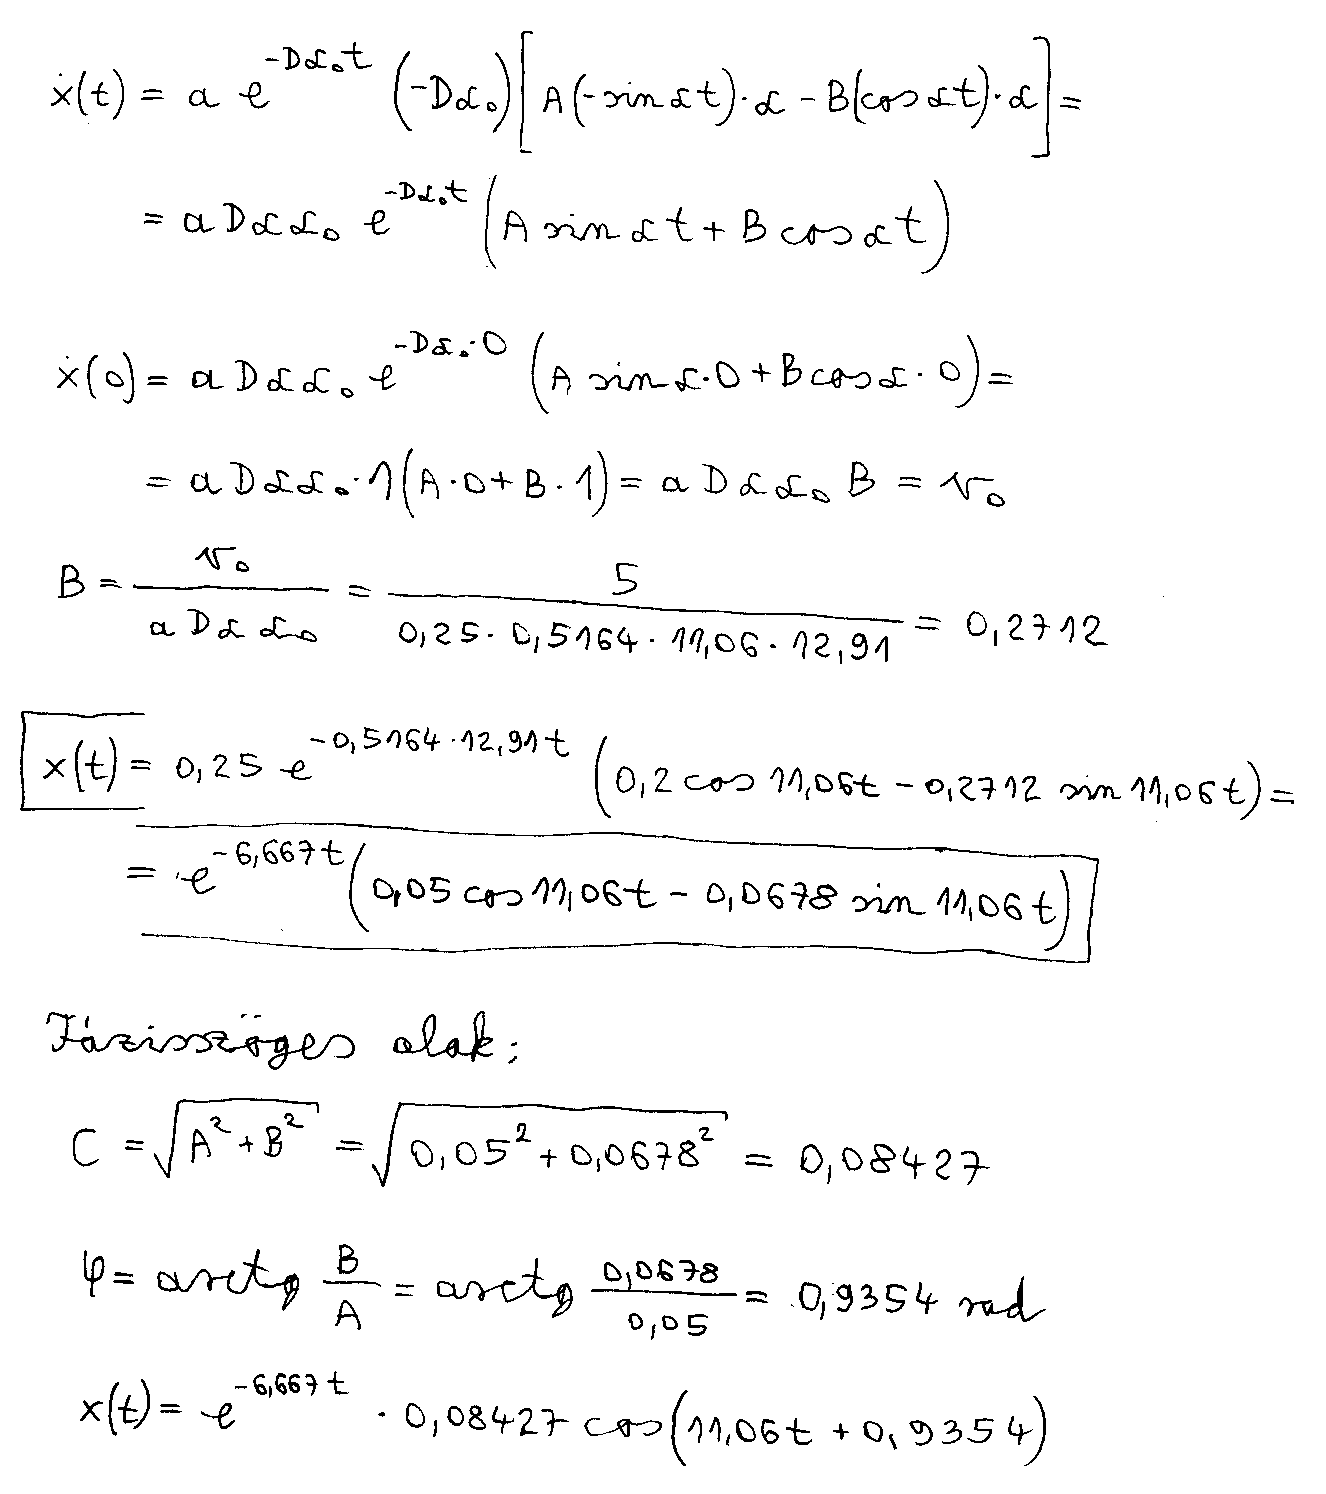 ẋ(t) = a e^{-Dα₀t} (-Dα₀)[A(-sin αt)·α - B(cos αt)·α] =
= a D α α₀ e^{-Dα₀t} (A sin αt + B cos αt)
ẋ(0) = a D α α₀ e^{-Dα₀·0} (A sin α·0 + B cos α·0) =
= a D α α₀·1(A·0 + B·1) = a D α α₀ B = v₀
B = v₀/(a D α α₀) = 5/(0,25·0,5164·11,06·12,91) = 0,2712
x(t) = 0,25 e^{-0,5164·12,91t} (0,2 cos 11,06t - 0,2712 sin 11,06t) =
= e^{-6,667t} (0,05 cos 11,06t - 0,0678 sin 11,06t)
Fázisszöges alak:
C = √(A² + B²) = √(0,05² + 0,0678²) = 0,08427
φ = arctg B/A = arctg 0,0678/0,05 = 0,9354 rad
x(t) = e^{-6,667t} · 0,08427 cos(11,06t + 0,9354)